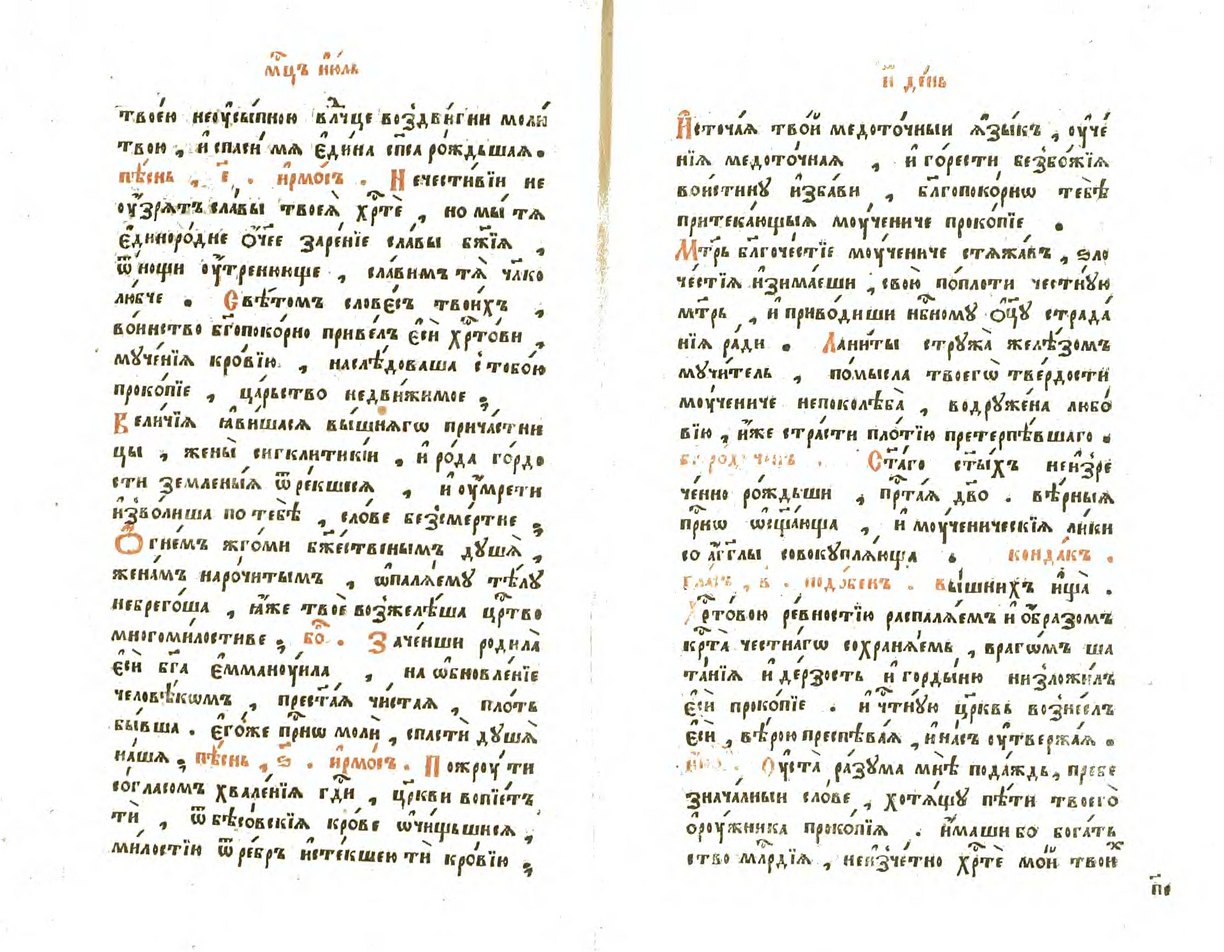 мц҃ъ ію́ль
твоею неѹсы́пною влⷣчце воз̾дви́гни моли́
твою , и҆ спаси́ мѧ є҆ди́на сп҃са ро́ждьшаѧ.
пѣ́снь , є҃ . і҆рмо́съ . Нечести́вїи не
ѹ҆́зрѧтъ сла́вы твоеѧ̀ хрⷭ҇тѐ , но мы́ тѧ
є҆диноро́дне ѻ҆́чее заре́нїе сла́вы бж҃їѧ ,
ѿ но́щи ѹ҆́тренююще , сла́вимъ тѧ̀ чл҃ко
лю́бче . Свѣ́томъ слове́съ твои́хъ ,
во́иньство бг҃опоко́рно приве́лъ є҆сѝ хрⷭ҇то́ви ,
мꙋче́нїѧ кро́вїю , наслѣ́доваша с тобо́ю
проко́пїе , ца́рьство недви́жимое ;
Вели́чїѧ ꙗ҆ви́шасѧ вы́шнѧгѡ прича́стни
цы , жены̀ сигклитикі́и , и҆ ро́да го́рдо
сти земле́ныѧ ѿре́кшесѧ , и҆ ѹ҆мре́ти
и҆зво́лиша по тебѣ̀ , сло́ве без̾сме́ртне ;
Ѻ҆гне́мъ жго́ми бж҃е́ствеиымъ дꙋшѧ̀ ,
жена́мъ наро́читымъ , ѡ҆палѧ́емꙋ тѣ́лꙋ
небрего́ша , ꙗ҆́же твоѐ воз̾желѣ́ша црⷭ҇тво
многоми́лостиве ; бо҃ . Заче́нши родила̀
є҆сѝ бг҃а є҆ммано́ѹила , на ѡ҆бновле́нїе
человѣ́кѡмъ , прест҃аѧ чи́стаѧ , пло́ть
бы́вша . є҆го́же прⷭ҇нѡ молѝ , спастѝ дꙋшѧ̀
на́шѧ . пѣ́снь , ѕ҃ . і҆рмо́съ . Пожрѹ́ ти
со́гласомъ хвале́нїѧ гд҃и , цр҃кви вопїе́тъ
тѝ , ѿ бѣсо́вскїѧ кро́ве ѡ҆чи́щьшисѧ ,
ми́лостїю ѿ ре́бръ и҆сте́кшею тѝ кро́вїю ;
и҃ де́нь
И҆сточа́ѧ тво́й медото́чныи ѧ҆зы́къ , ѹ҆че́
нїѧ медото́чнаѧ , и҆ го́рести без̾бо́жїѧ
вои́стинꙋ и҆зба́ви , бл҃гопоко́рнѡ тебѣ̀
притека́ющыѧ мѹ́чениче проко́пїе .
Мт҃рь бл҃гоче́стїе мѹ́чениче стѧжа́въ , ѕло
че́стїѧ и҆зима́еши , свою̀ по пло́ти че́стнꙋю
мт҃рь , и҆ приво́диши нб҃номꙋ ѻ҆ц҃ꙋ страда́
нїѧ ра́ди . Лани́ты стрꙋжа̀ желѣ́зомъ
мꙋчи́тель , по́мысла твоегѡ̀ тве́рдости
мѹ́чениче непоколѣ́ба , водрꙋже́на любо́
вїю , и҆́же стра́сти пло́тїю претерпѣ́вшаго .
богородиченъ . Ст҃а́го ст҃ы́хъ неиз̾ре
че́нно ро́ждьши , прⷭ҇таѧ дв҃о . вѣ́рныѧ
прⷭ҇нѡ ѡ҆сщ҃а́юща , и҆ мѹ́ченическїѧ ли́ки
со а҆́гг҃лы совокꙋплѧ́юща . конда́къ .
гла́съ , в҃ . подо́бенъ . вы́шнихъ и҆ща̀ .
Хрⷭ҇то́вою ре́вностїю распалѧ́емъ и҆ ѻ҆́бразомъ
крⷭ҇та̀ че́стнагѡ сохранѧ́емь , врагѡ́мъ ша
та́нїѧ и҆ де́рзость и҆ горды́ню низложи́лъ
є҆сѝ проко́пїе . и҆ чⷭ҇тнꙋ́ю цр҃квь воз̾не́слъ
є҆сѝ , вѣ́рою преспѣва́ѧ , и҆ на́съ ѹ҆твержа́ѧ .
Ѹ҆ста̀ ра́зꙋма мнѣ̀ пода́ждь , пребе
знача́лныи сло́ве , хотѧ́щꙋ пѣ́ти твоего̀
ѻ҆рѹ́жника проко́пїѧ . и҆́маши бо бога́ть
ство млⷭ҇рдїѧ , неиз̾че́тно хрⷭ҇тѐ мо́й твои́х